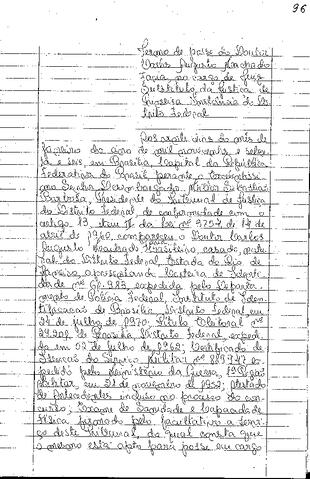 96
Termo de posse do Doutor
Carlos Augusto Machado
Faria, no cargo de Juiz
Substituto da Justiça de
Primeira Instância do Dis-
trito Federal.
dias do mês de
janeiro do ano de mil novecentos e seten-
ta e seis, em Brasília, Capital da República
Federativa do Brasil, perante o Excelentíssi-
mo Senhor Desembargador
Presidente do Tribunal de Justiça
do Distrito Federal, de conformidade com o
artigo 13, item da Lei nº 3754 de 14 de
abril de 1960, compareceu o Doutor Carlos
Augusto Machado Faria, casado, natu-
ral do Estado do Rio de
Janeiro, apresentando Carteira de Identi-
dade nº expedida pelo Departa-
mento de Polícia Federal, Instituto de Iden-
tificação de Brasília, Distrito Federal, em
24 de julho de 1970; Título Eleitoral nº
de Brasília, Distrito Federal, expedi-
do em de julho de 1968; Certificado de
do Serviço Militar nº ex-
pedido pelo Ministério da Guerra,
Militar, em 21 de novembro de 1952; Atestado
de Antecedentes incluso no processo do con-
curso; Exame de Sanidade e Capacidade
Física firmado pelo facultativo a servi-
ço deste Tribunal, do qual consta que
o mesmo está apto para posse em cargo